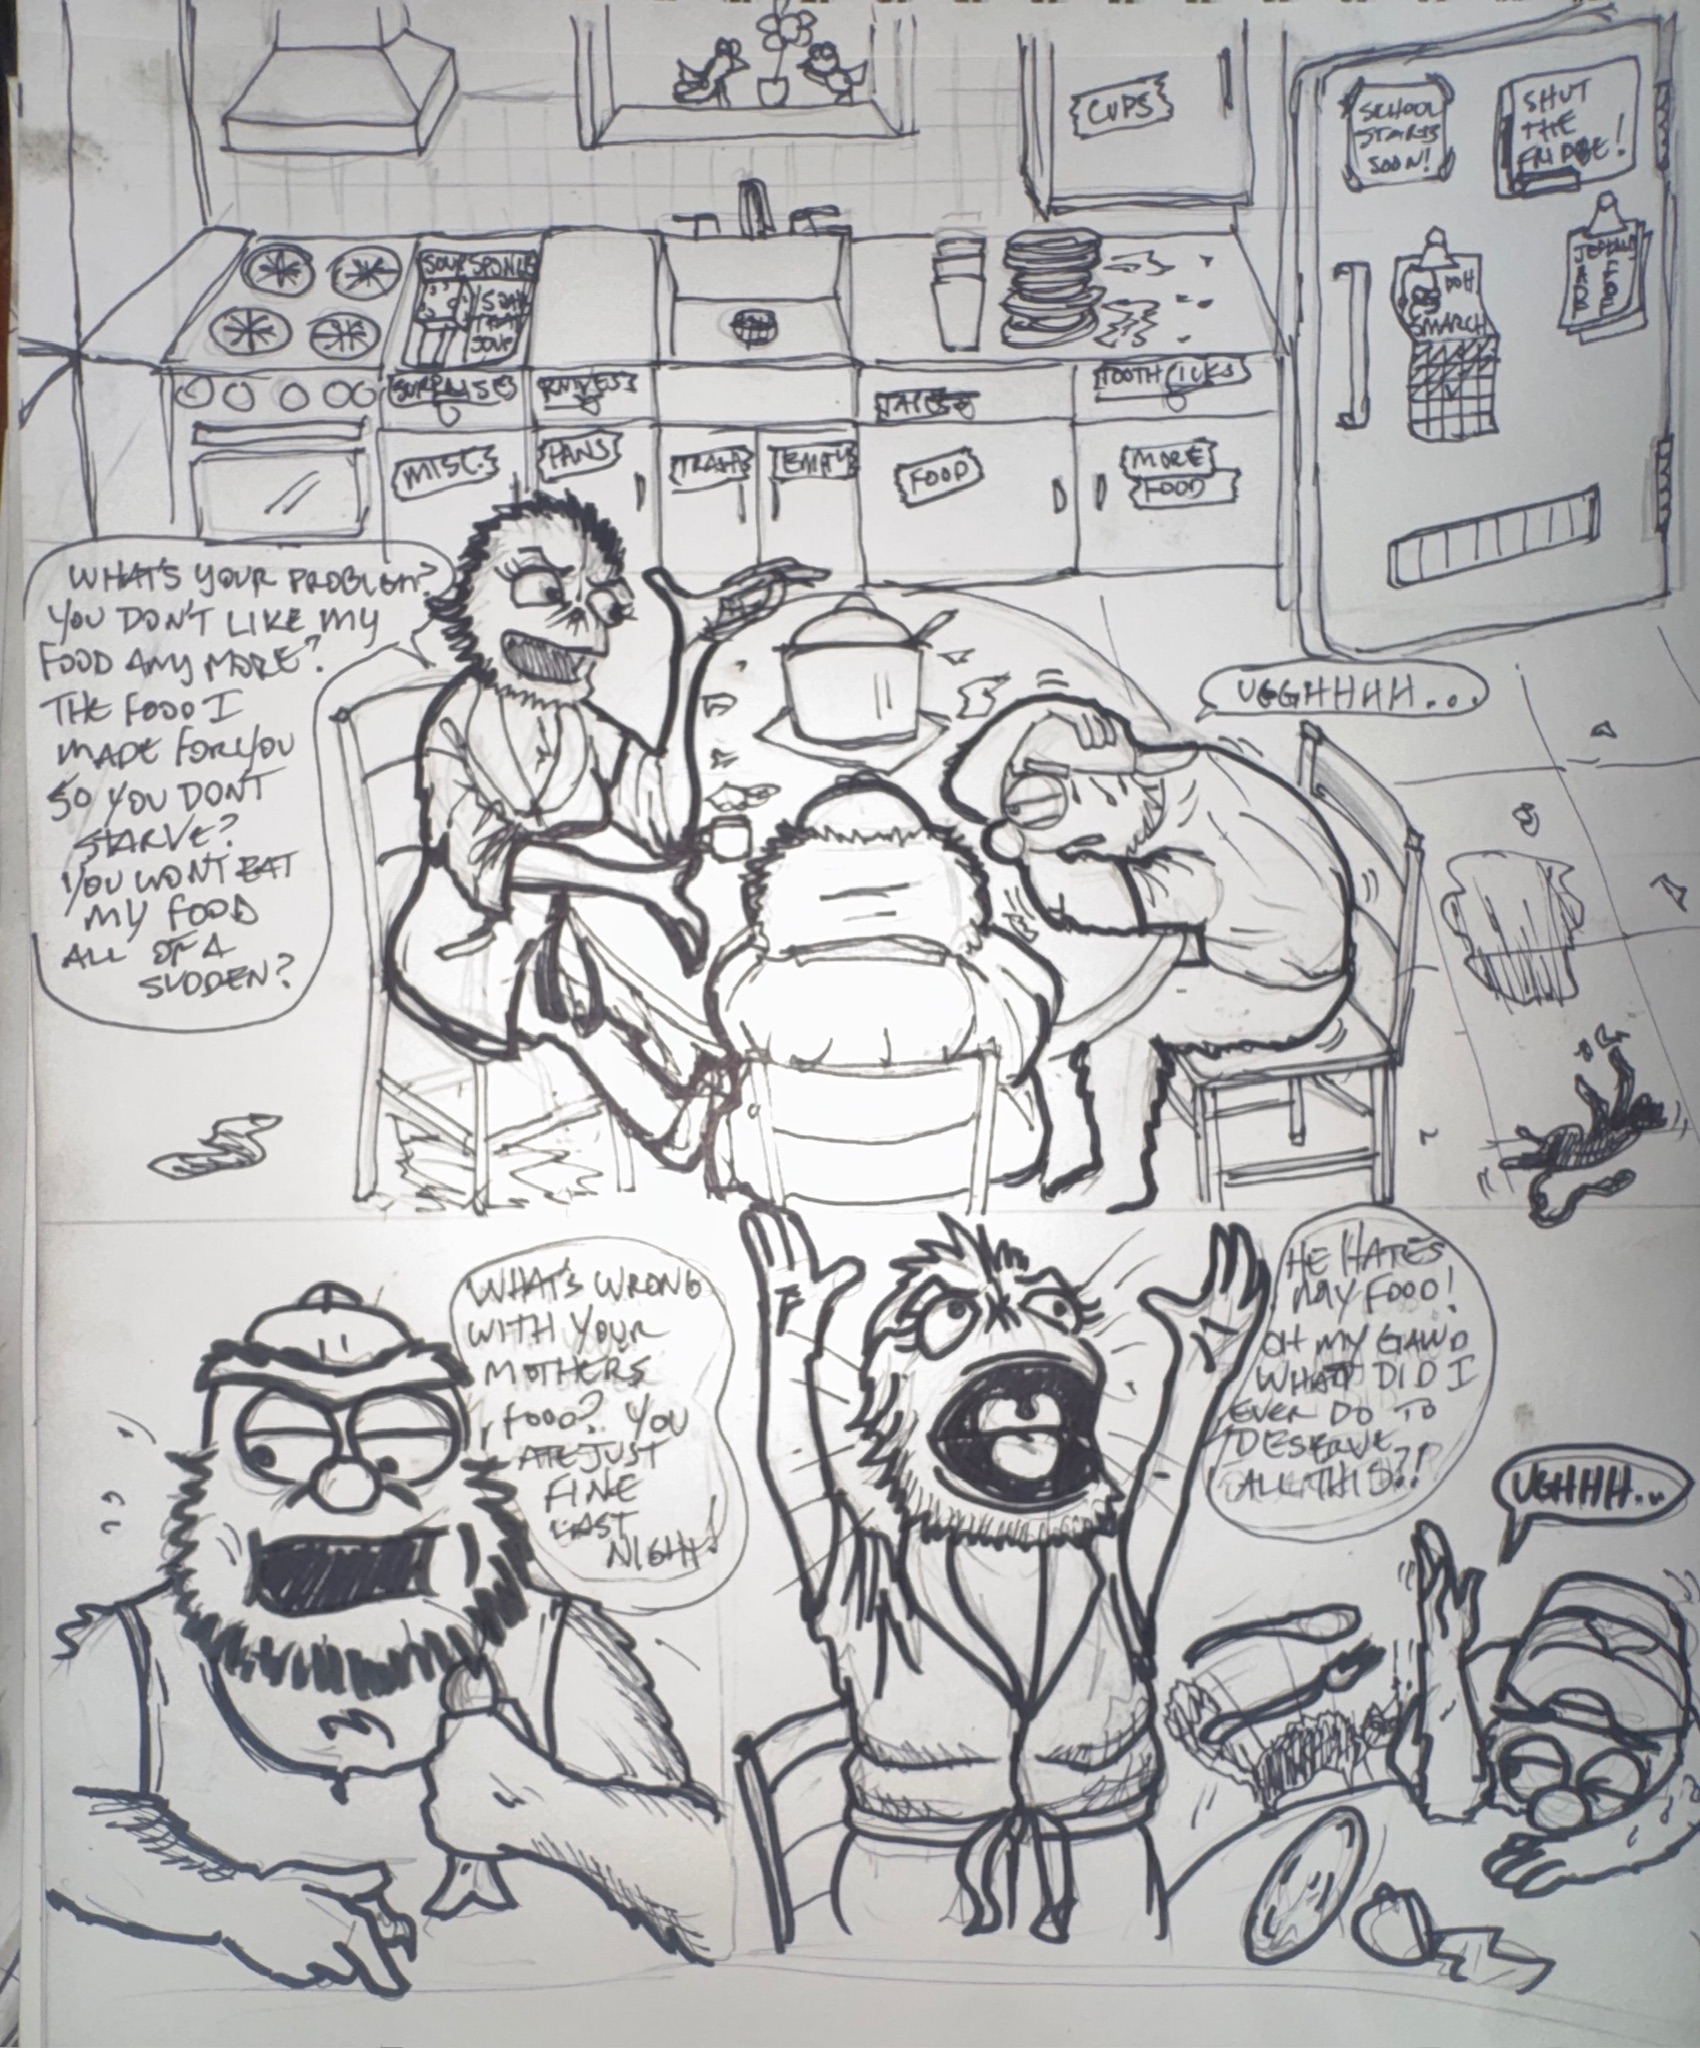 CUPS
SCHOOL
STARTS
SOON!
SHUT
THE
FRIDGE!
DOH
SMARCH
SOUP SPONGE
SOUP
SURPRISE
KNIVES
TOOTH PICKS
MISC.
PANS
TRASH
EMPTY
FOOD
MORE
FOOD
WHAT'S YOUR PROBLEM?
YOU DON'T LIKE MY
FOOD ANY MORE?
THE FOOD I
MADE FOR YOU
SO YOU DON'T
STARVE?
YOU WON'T EAT
MY FOOD
ALL OF A
SUDDEN?
UGGHHHH...
WHAT'S WRONG
WITH YOUR
MOTHERS
FOOD? YOU
ATE JUST
FINE
LAST
NIGHT!
HE HATES
MY FOOD!
OH MY GAWD
WHAT DID I
EVER DO TO
DESERVE
ALL THIS?!
UGHHH...